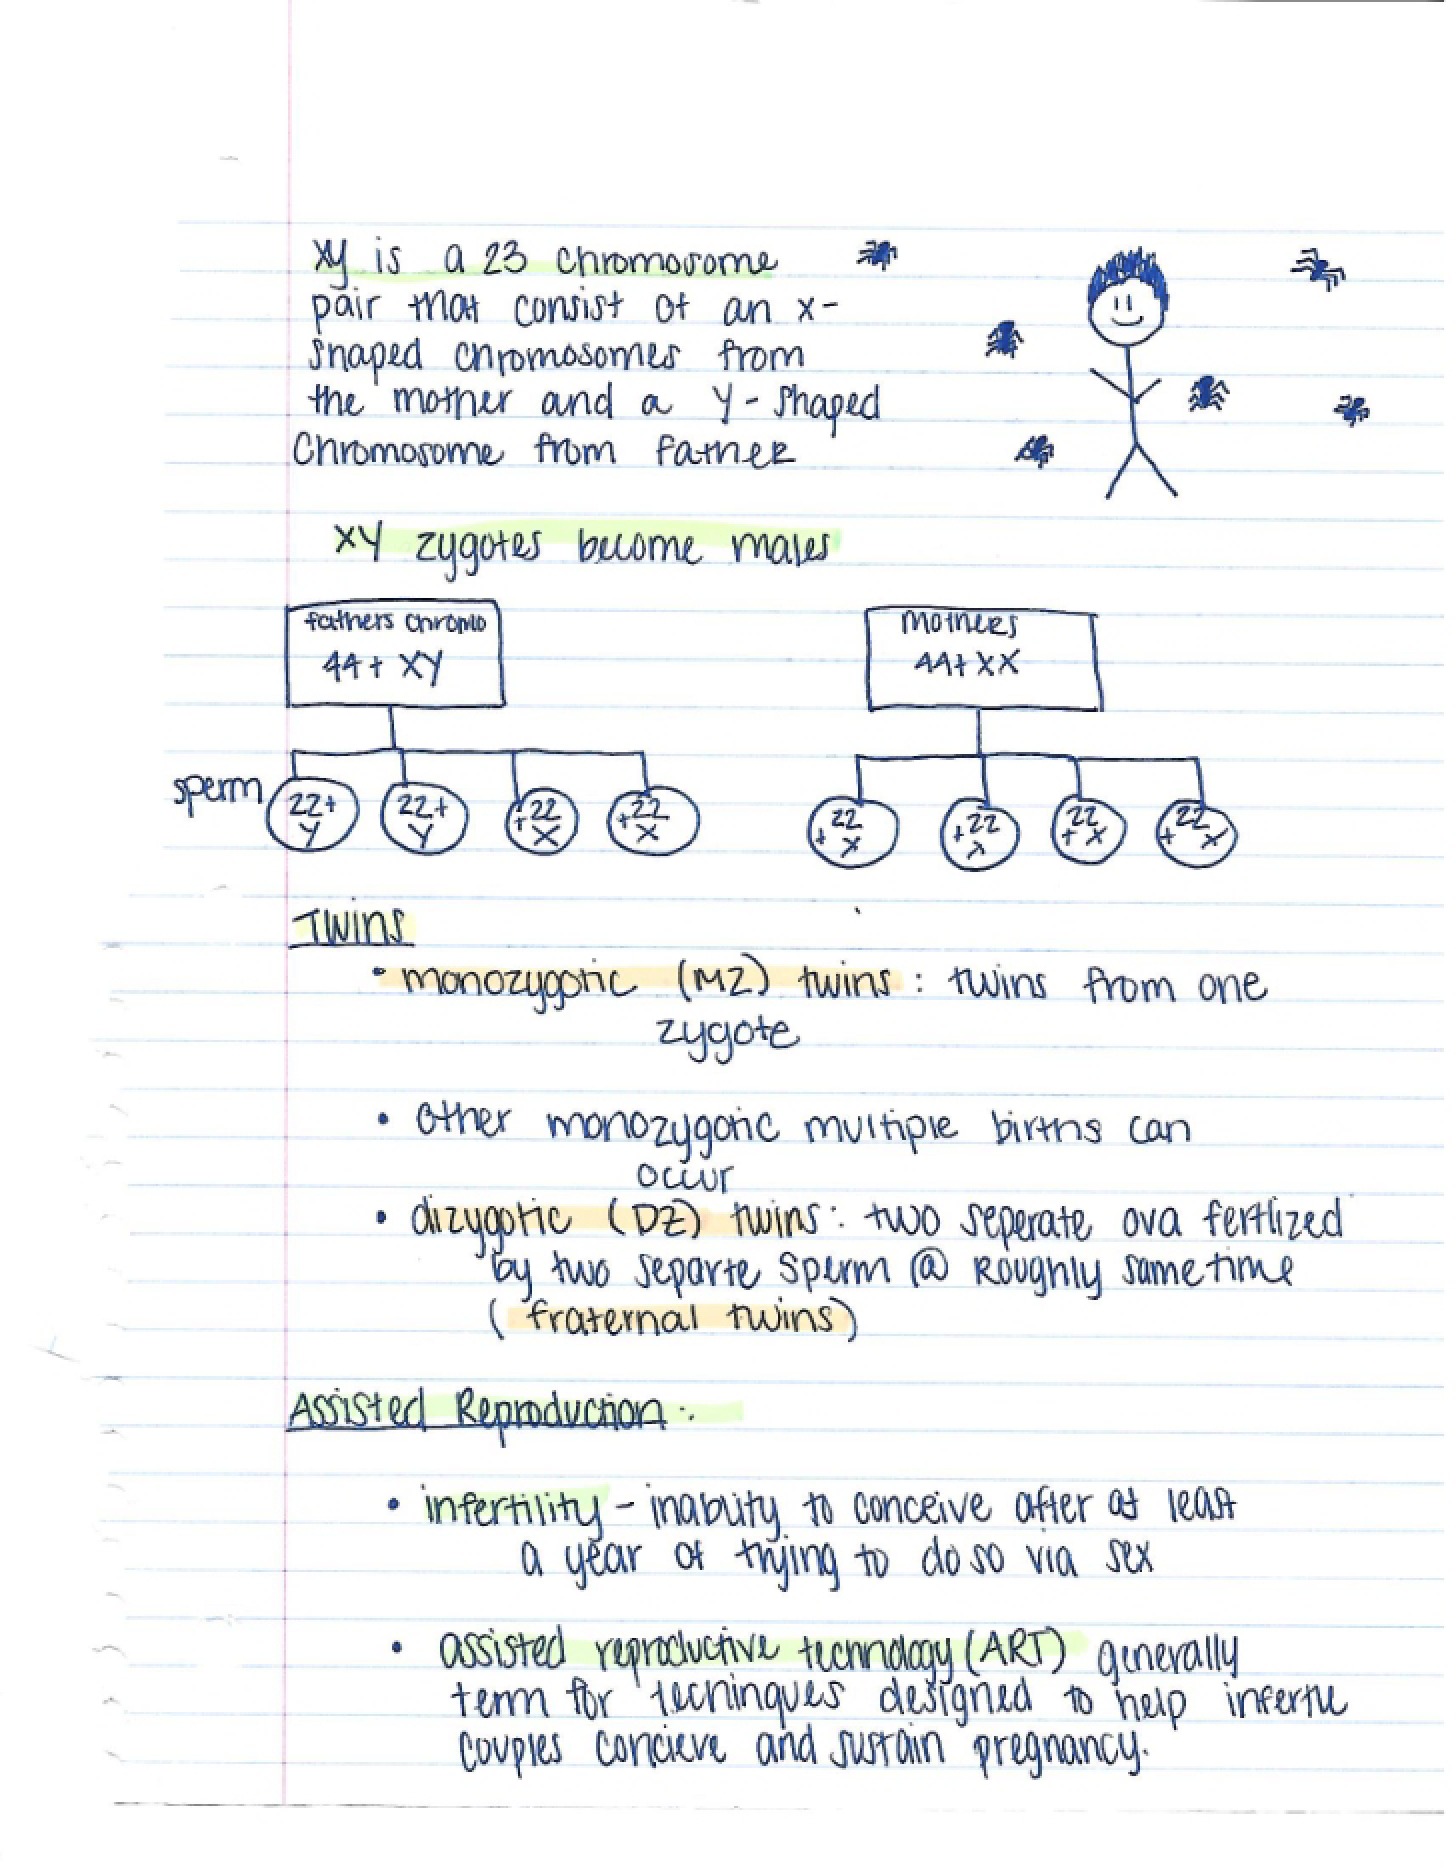 xy is a 23 chromosome
pair that consist of an x-
shaped chromosomes from
the mother and a Y-shaped
Chromosome from father
XY zygotes become males
fathers chromo
44+ XY
mothers
44+ XX
sperm
22+
Y
22+
Y
+22
X
+22
X
22
+ X
+22
X
22
+ X
22
+ X
Twins
• monozygotic (MZ) twins : twins from one
zygote
• other monozygotic multiple births can
occur
• dizygotic (DZ) twins: two seperate ova fertlized
by two separte sperm @ roughly same time
( fraternal twins)
Assisted Reproduction:
• infertility - inability to conceive after at least
a year of trying to do so via sex
• assisted reproductive technology (ART) generally
term for techinques designed to help infertile
couples concieve and sustain pregnancy.